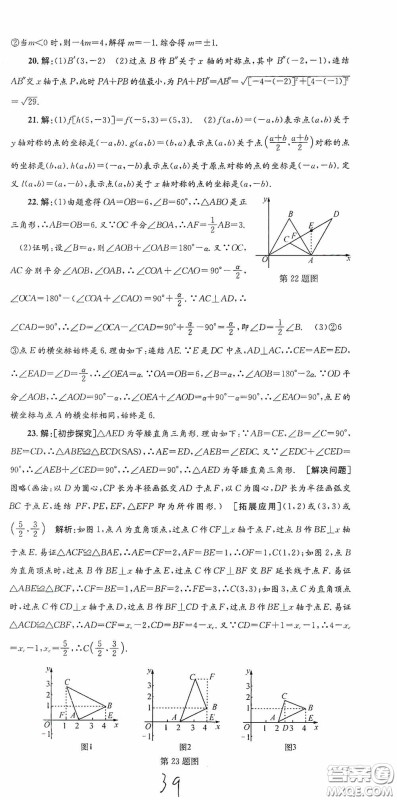 ②当m<0时,则-4m=4,解得m=-1.综合得m=±1.
20.解:(1)B′(3,-2) (2)过点B作B″关于x轴的对称点,其中B″(-1,-2),连结
AB″交x轴于点P,此时PA+PB的值最小,为PA+PB″=AB″=√[-4-(-2)]²+[4-(-1)]²
=√29.
21.解:(1)f[h(5,-3)]=f(-5,3)=(5,3). (2)f(a,b)=(-a,b)表示点(a,b)关于
y轴对称的点的坐标是(-a,b).g(a,b)=(b,a)表示点(a,b)关于点((a+b)/2,(a+b)/2)对称的点
的坐标是(b,a).h(a,b)=(-a,-b)表示点(a,b)关于原点对称的点的坐标是(-a,-b).定
义l(a,b)=(a,-b)表示点(a,b)关于x轴对称的点的坐标是(a,-b).
22.解:(1)由题意得OA=OB=6,∠AOB=60°,∴△ABO是正
三角形,∴AB=OB=6.又∵OC平分∠BOA,∴AF=1/2AB=3.
(2)证明:设∠B=α,则∠AOB+∠OAB=180°-α.又∵OC、
AC分别平分∠AOB、∠OAB,∴∠COA+∠CAO=90°-α/2,
∠OCA=180°-(∠COA+∠CAO)=90°+α/2.∵AC⊥AD,∴
∠CAD=90°,∴∠D=∠OCA-∠CAD=90°+α/2-90°=α/2,即∠D=1/2∠B. (3)②6
③点E的横坐标始终是6.理由如下:连结AE.∵E是DC中点,AD⊥AC,∴CE=AE=ED,
∴∠EAD=∠D=α/2,∴∠OEA=α.∵OA=OB=6,∠B=α,∴∠AOB=180°-2α.∵OD平
分∠AOB,∴∠AOD=90°-α,∴∠OEA+∠AOD=α+90°-α=90°,∴∠EAO=90°,点E的
横坐标与点A的横坐标相同,始终是6.
B
D
E
F
C
O
A
x
y
第22题图
23.解:[初步探究]△AED为等腰直角三角形.理由如下:∵AB=CE,∠B=∠C=90°,
BE=CD,∴△ABE≌△ECD(SAS),∴AE=ED,∠AEB=∠EDC.又∵∠EDC+∠CED=
90°,∴∠AEB+∠CED=90°,∴∠AED=90°,∴△AED为等腰直角三角形. [解决问题]
图略(画法:以D为圆心,CP长为半径画弧交AD于点F,以C为圆心,DP长为半径画弧交
BC于点E,连结PF、PE、EF,△EFP即为所作图形.) [拓展应用](1,2)或(3,3)或
(5/2,3/2) 解析:如图1,点A为直角顶点,过点C作CF⊥x轴于点F,过点B作BE⊥x轴
于点E.易证△ACF≌△BAE,∴AE=CF=2,AF=BE=1,∴OF=1,C(1,2);如图2,点B
为直角顶点时,过点B作BE⊥x轴于点E,过点C作CF⊥BF交BF延长线于点F.易证
△ABE≌△BCF,∴CF=BE=1,AE=BF=2,∴FE=3,∴C(3,3);如图3,点C为直角顶点
时,过点C作CD⊥x轴于点D,过点B作BF⊥CD于点F,过点B作BE⊥x轴于点E.易证
△ACD≌△CBF,∴AD=CF=x꜀-2,CD=BF=4-x꜀.又∵CD=CF+1=x꜀-1,∴4-x꜀
=x꜀-1,x꜀=5/2,∴C(5/2,3/2).
图1 图2 图3
第23题图
39